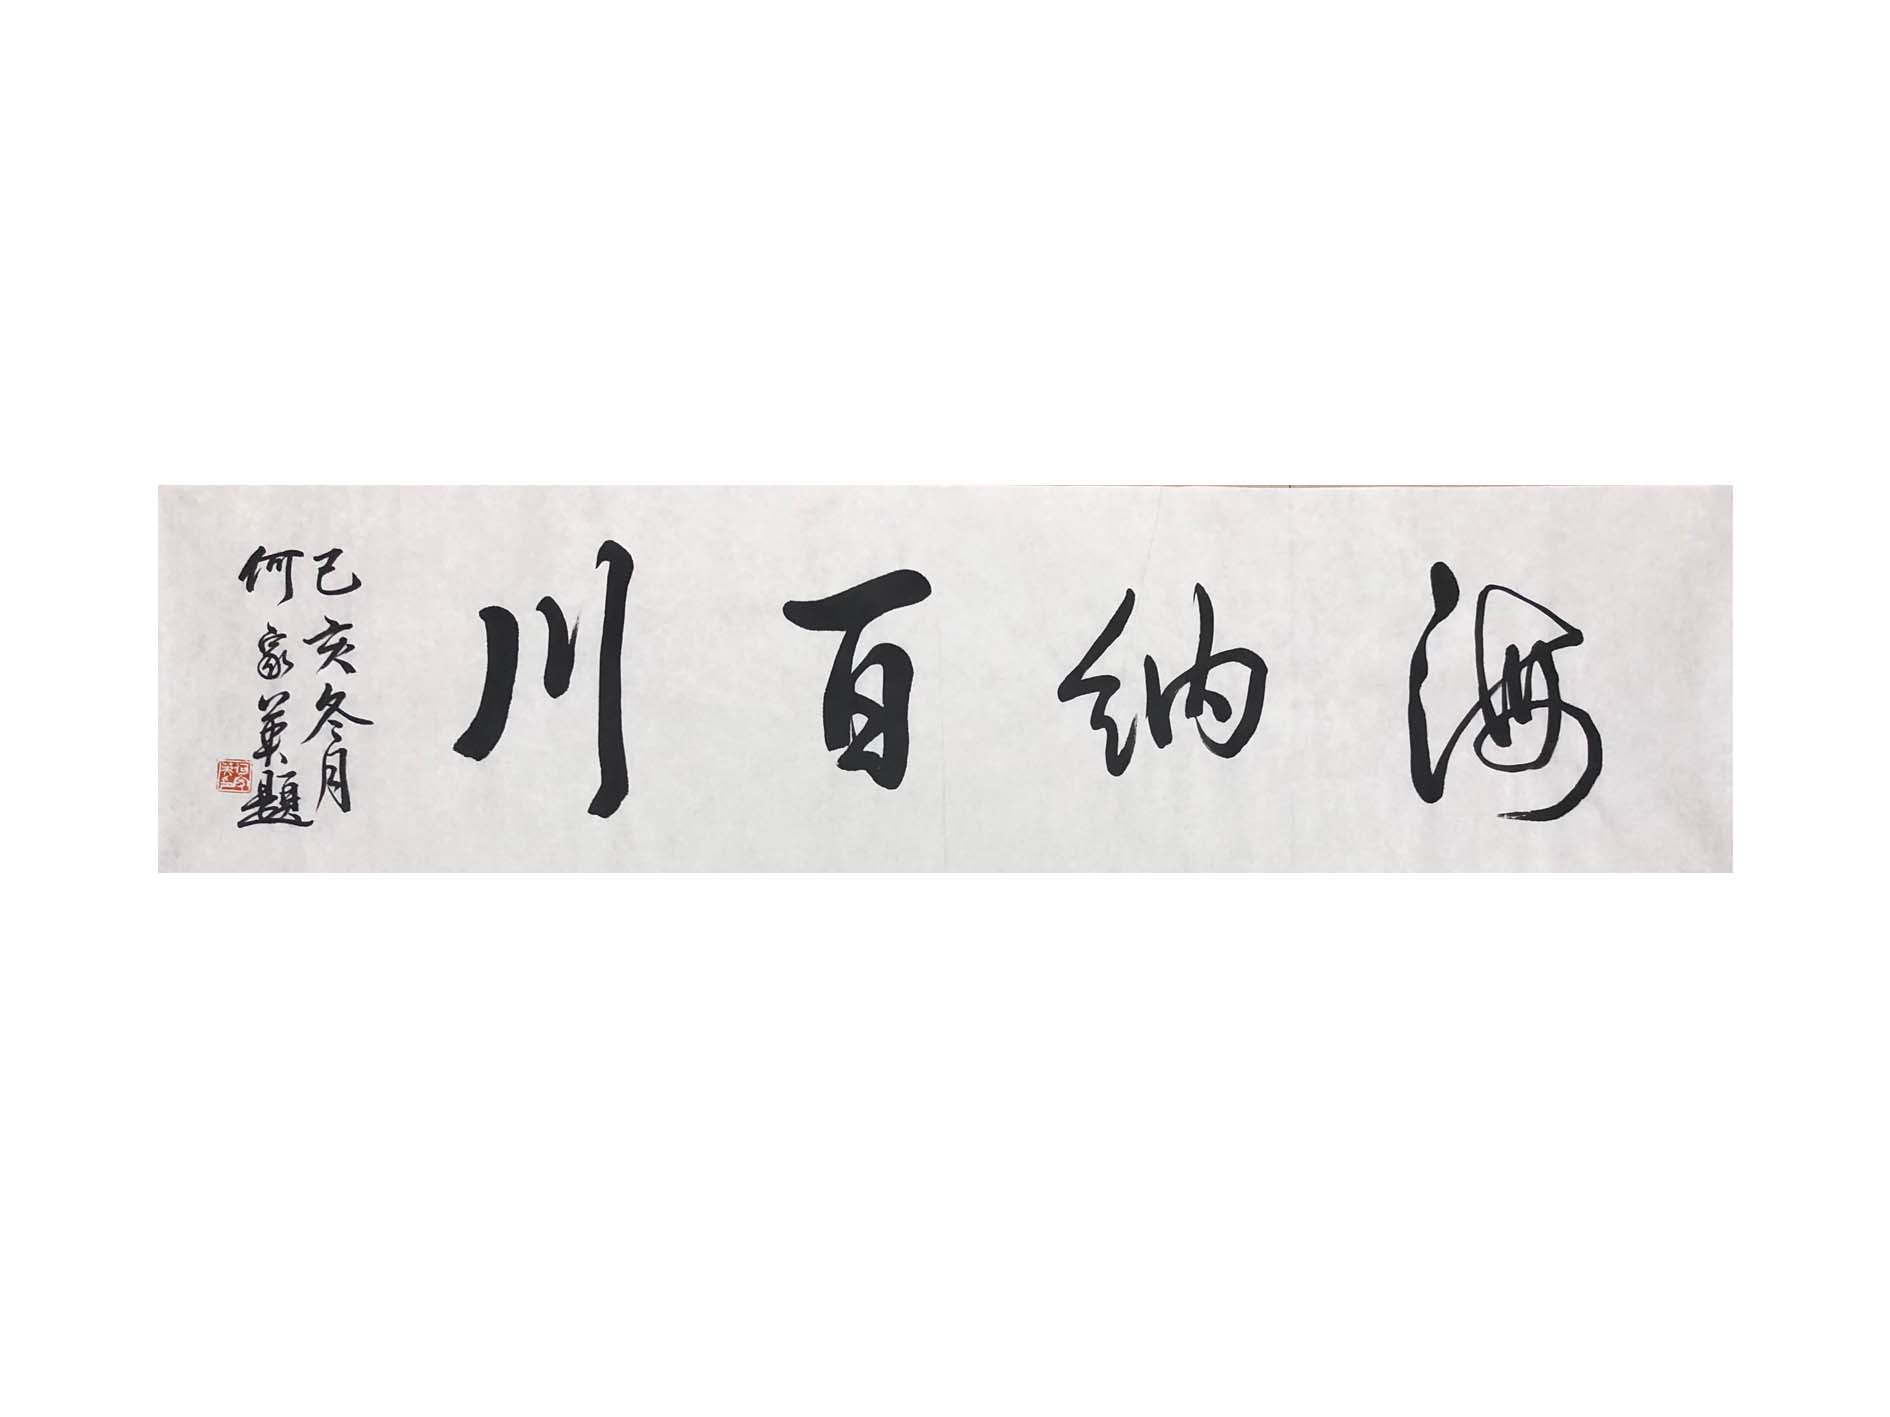 海纳百川
己亥冬月
何家英题